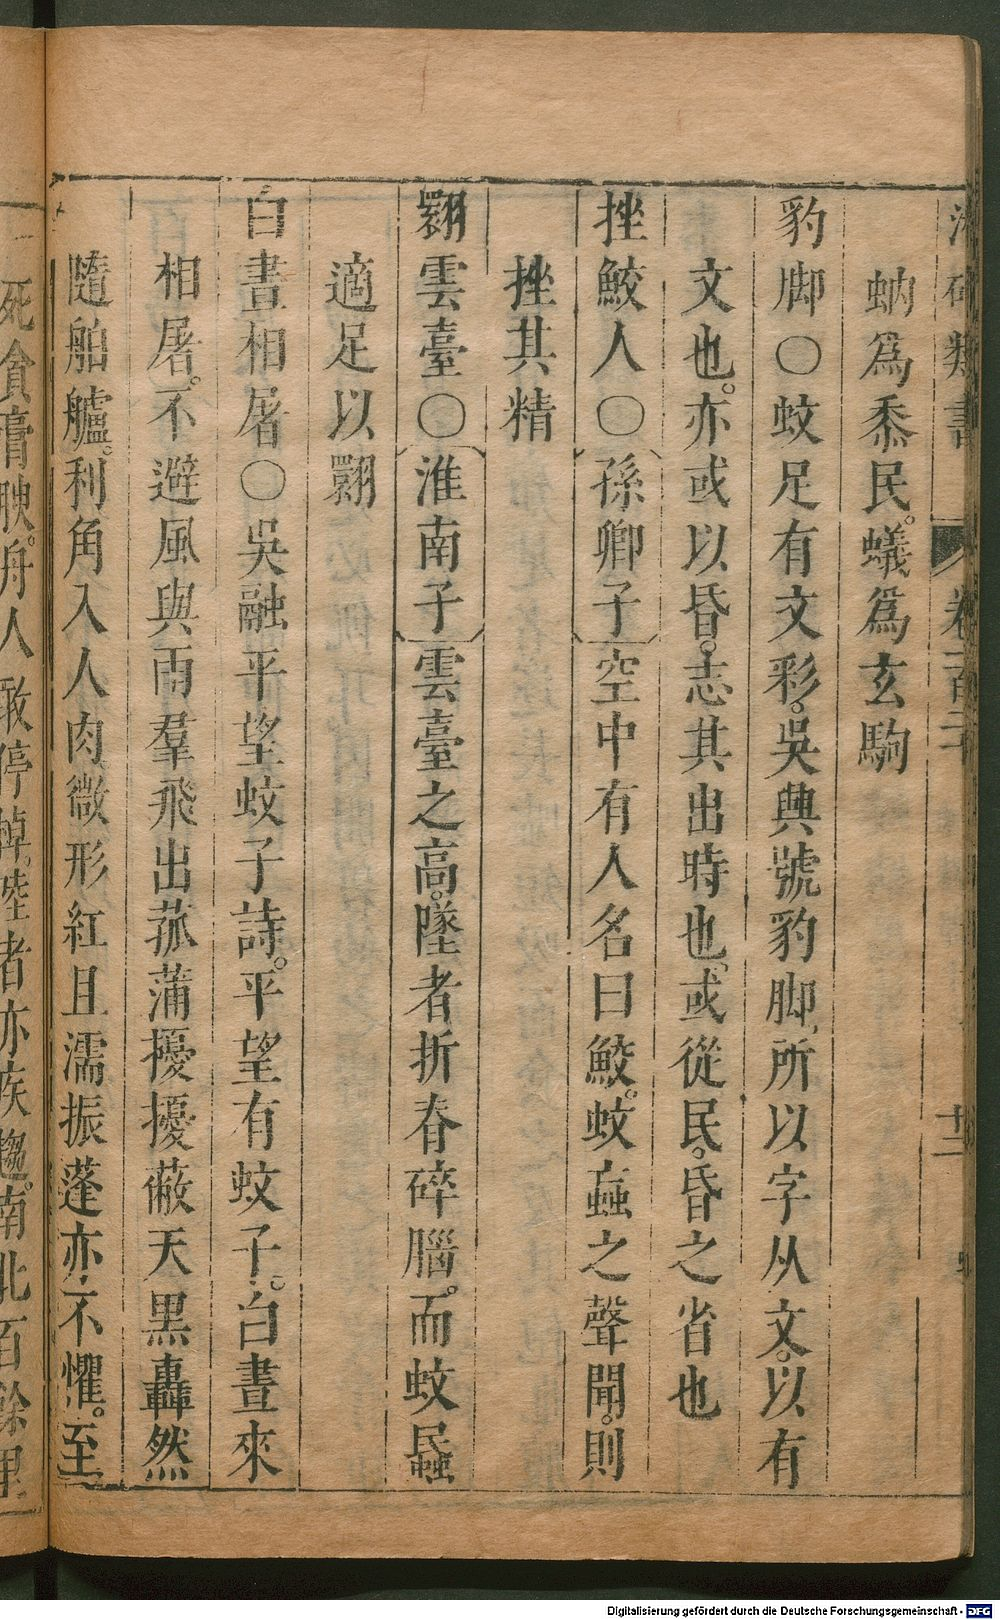 類書 卷一百二十 十二
蚋爲黍民。蟻爲玄駒
豹脚○蚊足有文彩。吳興號豹脚，所以字从文。以有
文也。亦或以昏。志其出時也。或從民。昏之省也
挫鮫人○孫卿子空中有人名曰鮫。蚊蝱之聲聞。則
挫其精
翾雲臺○淮南子雲臺之高。墜者折脊碎腦。而蚊蝱
適足以翾
白晝相屠○吳融平望蚊子詩。平望有蚊子。白晝來
相屠。不避風與雨羣飛出菰蒲擾擾蔽天黑轟然
隨舶艫。利角入人肉微形紅且濡振蓬亦不懼。至
死貪膏腴。舟人敢停棹。陸者亦疾趨。南北百餘里
Digitalisierung gefördert durch die Deutsche Forschungsgemeinschaft - DFG